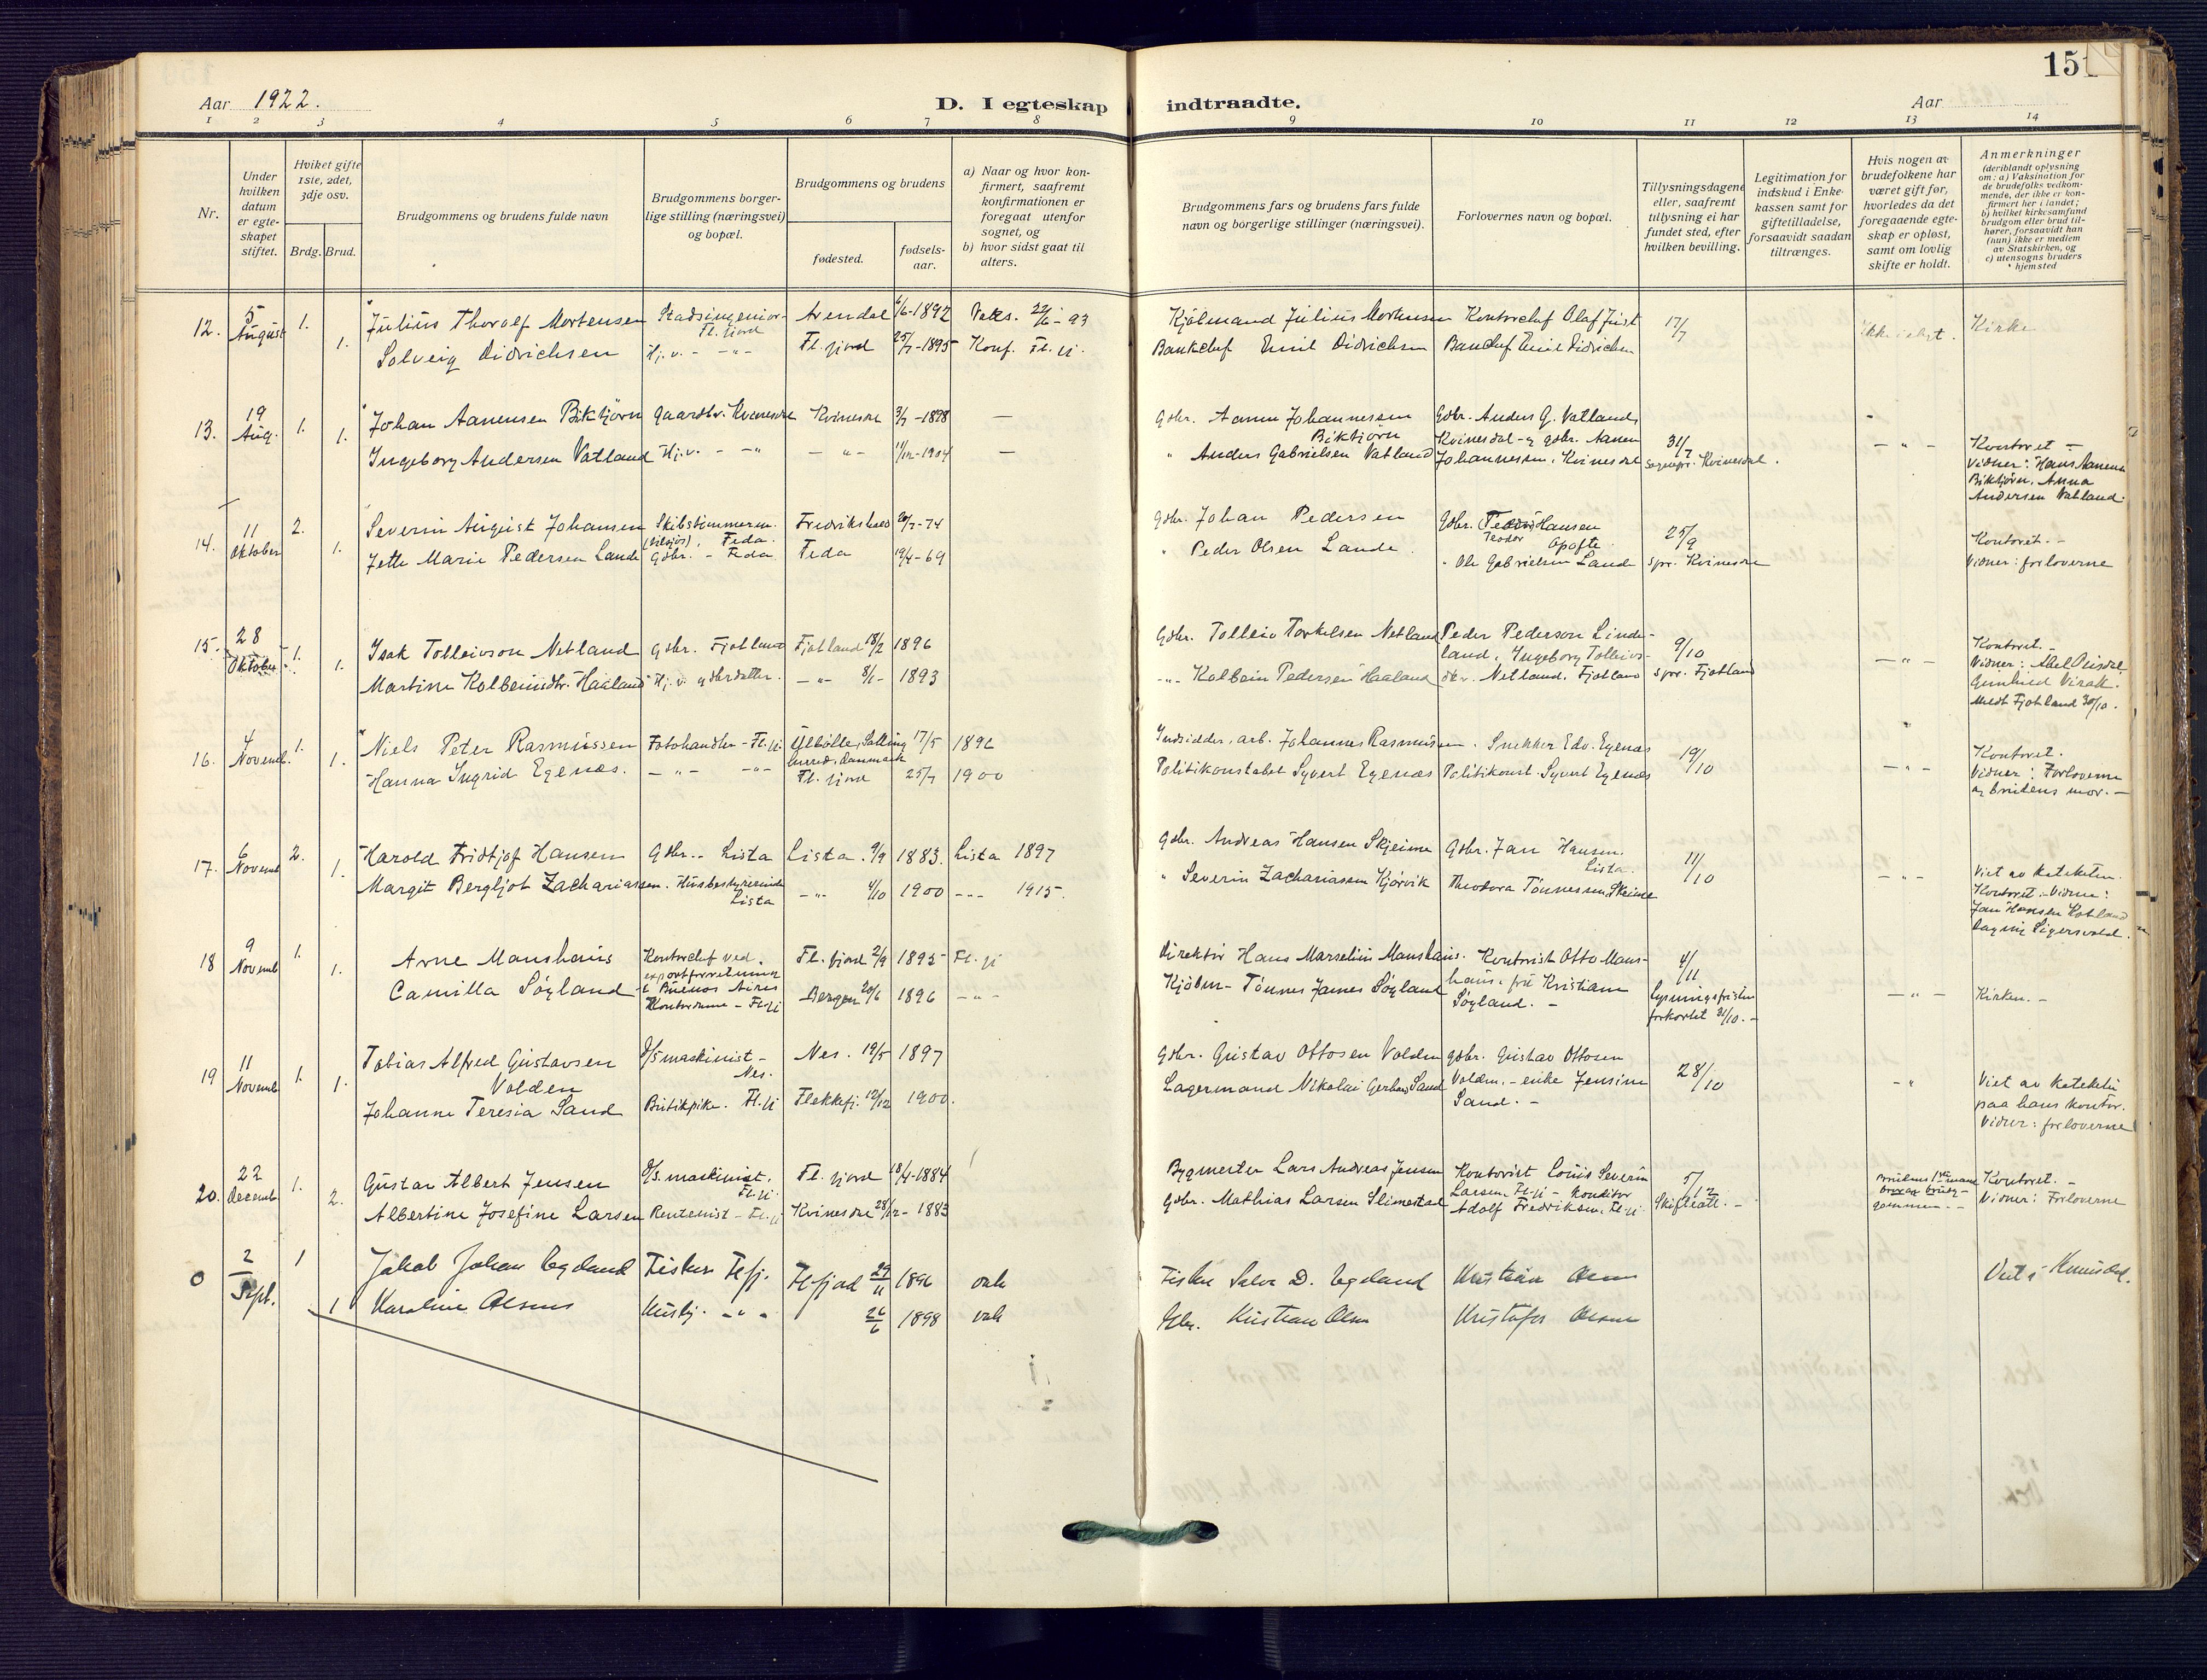 151
Aar 1922.
D. I egteskap indtraadte.
Aar
1 2 3 4 5 6 7 8 9 10 11 12 13 14
Nr.
Under hvilken datum er egteskapet stiftet.
Hvilket gifte 1ste, 2det, 3dje osv.
Brdg. Brud.
Brudgommens og brudens fulde navn
Brudgommens borgerlige stilling (næringsvei) og bopæl.
Brudgommens og brudens
fødested.
fødselsaar.
a) Naar og hvor konfirmert, saafremt konfirmationen er foregaat utenfor sognet, og
b) hvor sidst gaat til alters.
Brudgommens fars og brudens fars fulde navn og borgerlige stillinger (næringsvei).
Forlovernes navn og bopæl.
Tillysningsdagene eller, saafremt tillysning ei har fundet sted, efter hvilken bevilling.
Legitimation for indskud i Enkekassen samt for giftetilladelse, forsaavidt saadan tiltrænges.
Hvis nogen av brudefolkene har været gift før, hvorledes da det foregaaende egteskap er opløst, samt om lovlig skifte er holdt.
Anmerkninger
(deriblandt oplysning om: a) Vaksination for de brudefolks vedkommende, der ikke er konfirmert her i landet; b) hvilket kirkesamfund brudgom eller brud tilhører, forsaavidt han (hun) ikke er medlem av Statskirken, og c) utensogns bruders hjemsted
12. 5 August 1. Julius Thorolf Mortensen Stadsingeniør Fl.fjord Arendal 6/6-1892 Vaks. 22/6-93 Kjølmand Julius Mortensen Kontorchef Olaf Just 17/7 Kirke
1. Solveig Didrichsen Hj.v. - -"- Fl.fjord 25/7-1895 Konf. Fl.fj. Bankchef Emil Didrichsen Bankchef Emil Didrichsen
13. 19 Aug. 1. Johan Aanensen Biktjörn Gaardbr. Kvinesdal Kvinesdal 3/7-1898 — Gdbr. Aanen Johannessen Biktjörn Gdbr. Anders G. Vatland,
1. Ingeborg Andersen Vatland Hj.v. - -"- - "- 11/12-1904 — " Anders Gabrielsen Vatland Kvinesdal - og gdbr. Aanen Johannessen, Kvinesdal 31/7 Sognepr. Kvinesdal. - " - Kontoret -
Vidner: Hans Aanens.
Biktjörn, Anna
Andersen Vatland.
14. 11 Oktober 2. Severin August Johansen Skibstømmerm. Feda. Fredrikshald 20/7-74 Gdbr. Johan Pedersen Gdbr. Teodor Hansen Opofte 25/9 Kontoret. -
1. Jette Marie Pedersen Lande Gdbr. - Feda Feda 19/4-69 " Peder Olsen Lande. " Ole Gabrielsen Lande Spr. Kvinesdal Vidner: forloverne
15. 28 Oktober 1. Isak Tolleivson Netland gdbr. Fjotland Fjotland 18/2 1896 Gdbr. Tolleiv Torkelsen Netland Peder Pederson Lindeland, Ingeborg Tolleivsdtr. Netland, Fjotland 9/10 Spr. Fjotland
1. Martine Kolbeinsdtr. Haaland Hj.v. gdbrdatter. -"- 8/1- 1893 -"- Kolbein Pedersen Haaland - " - Kontoret. -
Vidner: Abel
Gunhild Virak.
Medt Fjotland 30/10.
16. 4 Novemb. 1. Niels Peter Rasmussen Fotohandler - Fl.fj. Ulbölle, Salling herred, Danmark 17/5 1896 Indsidder, arb. Johannes Rasmussen. Snekker Edv. Egenæs 19/10 Kontoret.
1. Hanna Ingrid Egenæs. - "- -"- Fl.fjord 25/7 1900 Politikonstabel Syvert Egenæs Politikonst. Syvert Egenæs - " - Vidner: Forloverne
og brudens mor. -
17. 6 Novemb 2. Harald Fridtjof Hansen Gdbr. - Lista Lista. 9/9 1883. Lista 1897 Gdbr. Andreas Hansen Skjeime Gdbr. Jan Hansen. Lista. 11/10
1. Margit Bergljot Zachariassen. Husbestyrerinde Lista -"- 4/10 1900 -"- 1915. " Severin Zachariassen Kjörvik Theodora Tönnessen, Skeime - " - Viet av kateketen.
Kontoret. - Vidner:
Jan Hansen
Dagny Sigersvold.
18 9 Novemb 1. Arne Manshaus Kontorchef ved exportforretning i Buenos Aires Fl.fjord 2/9 1895 Fl.fj Direktör Hans Marselius Manshaus. Kontorist Otto Manshaus. frk Kristiane Söyland. - 4/11
1. Camilla Söyland Kontordame - Fl.fj Bergen 20/6 1896 - " - Kjöbm- Tönnes James Söyland Lysningsfristen forkortet 31/10. - - " - Kirken. -
19 11 Novemb 1. Tobias Alfred Gustavsen Volden D/S maskinist - Nes. Nes. 19/5 1897 Gdbr. Gustav Ottosen Volden gdbr. Gustav Ottosen Volden. - enke Jensine Sand. - 28/10
1. Johanne Teresia Sand Butikpike. Fl.fj Flekkefj. 12/12 1900. Lagermand Nikolai Gerhard Sand - " Viet av kateketen
paa hans kontor.
Vidner: forloverne
20. 22 Decemb 1. Gustav Albert Jensen D/S. maskinist. Fl.fj. Fl.fjord 18/4-1884 Bygmester Lars Andreas Jensen Kontorist Louis Severin Larsen, Fl.fj - Konditor Adolf Fredriksen, Fl.fj. 5/12 Skifteatt. - Brudens 1ste mand Kontoret. -
2. Albertine Josefine Larsen Rentenist - Fl.fj Kvinesdal 28/12- 1883 Gdbr. Mathias Larsen Slimestad Vidner: Forloverne
0 2 Sept. 1 Jakob Johan Egeland Fisker Flfj. Flfjord 29/11 1896 vak Fisker Salve D. Egeland Kristian Olsen Viet i Kvinesdal.
1 Karoline Olsens Husbj. - " - 26/6 1898 vak Gbr. Kristian Olsen Kristofer Olsen